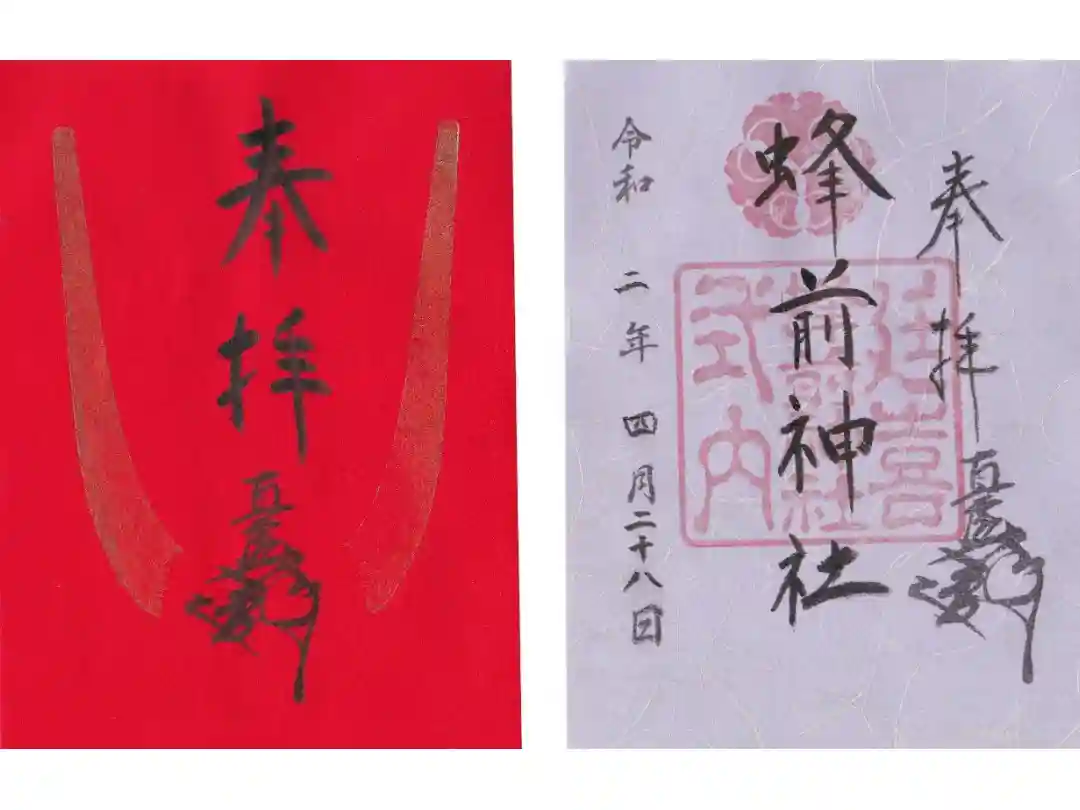 奉拝
奉拝
蜂前神社
延喜
式内
令和二年四月二十八日